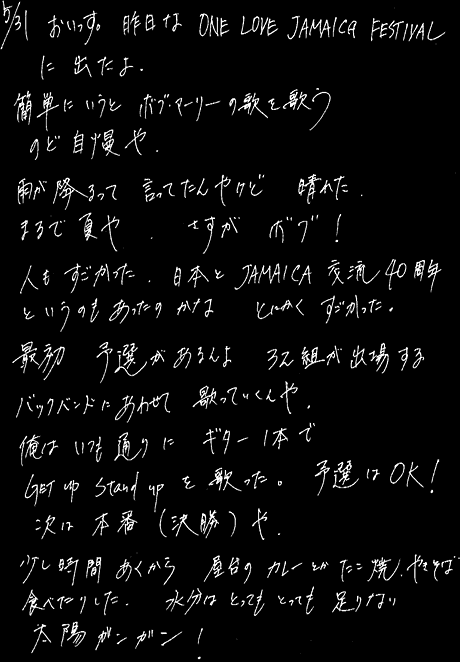 5/31 おいっす。昨日な ONE LOVE JAMAICA FESTIVAL
に出たよ.
簡単にいうと ボブ・マーリーの歌を歌う
のど自慢や.
雨が降るって 言ってたんやけど 晴れた.
まるで夏や. さすが ボブ!
人も すごかった. 日本と JAMAICA 交流 40周年
というのもあったのかな とにかく すごかった。
最初 予選があるんよ 32組が出場する
バックバンドにあわせて 歌っていくんや.
俺は いつも通りに ギター1本で
GET up Stand up を歌った。予選はOK!
次は 本番(決勝)や.
少し時間あくから 屋台の カレーとか たこ焼, やきそば
食べたりした. 水分は とっても とっても 足りない
太陽 ガンガン!